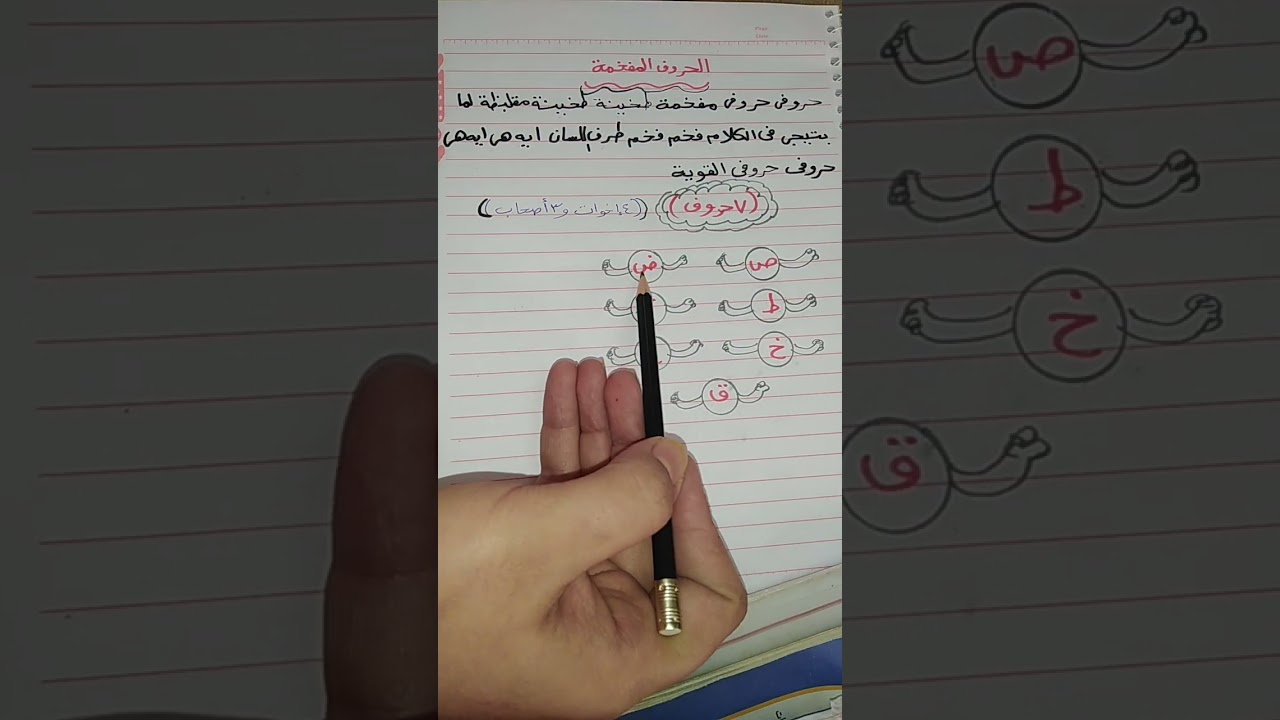 الحروف المفخمة
حروفى حروفى مفخمة تخينة تخينة مقلبظة لما
بتيجى فى الكلام فخم فخم طرف اللسان ايه هى ايه هى
حروفى حروفى القوية
(٧ حروف) ((٤ اخوات و٣ أصحاب))
ص ض
ط
خ
ق